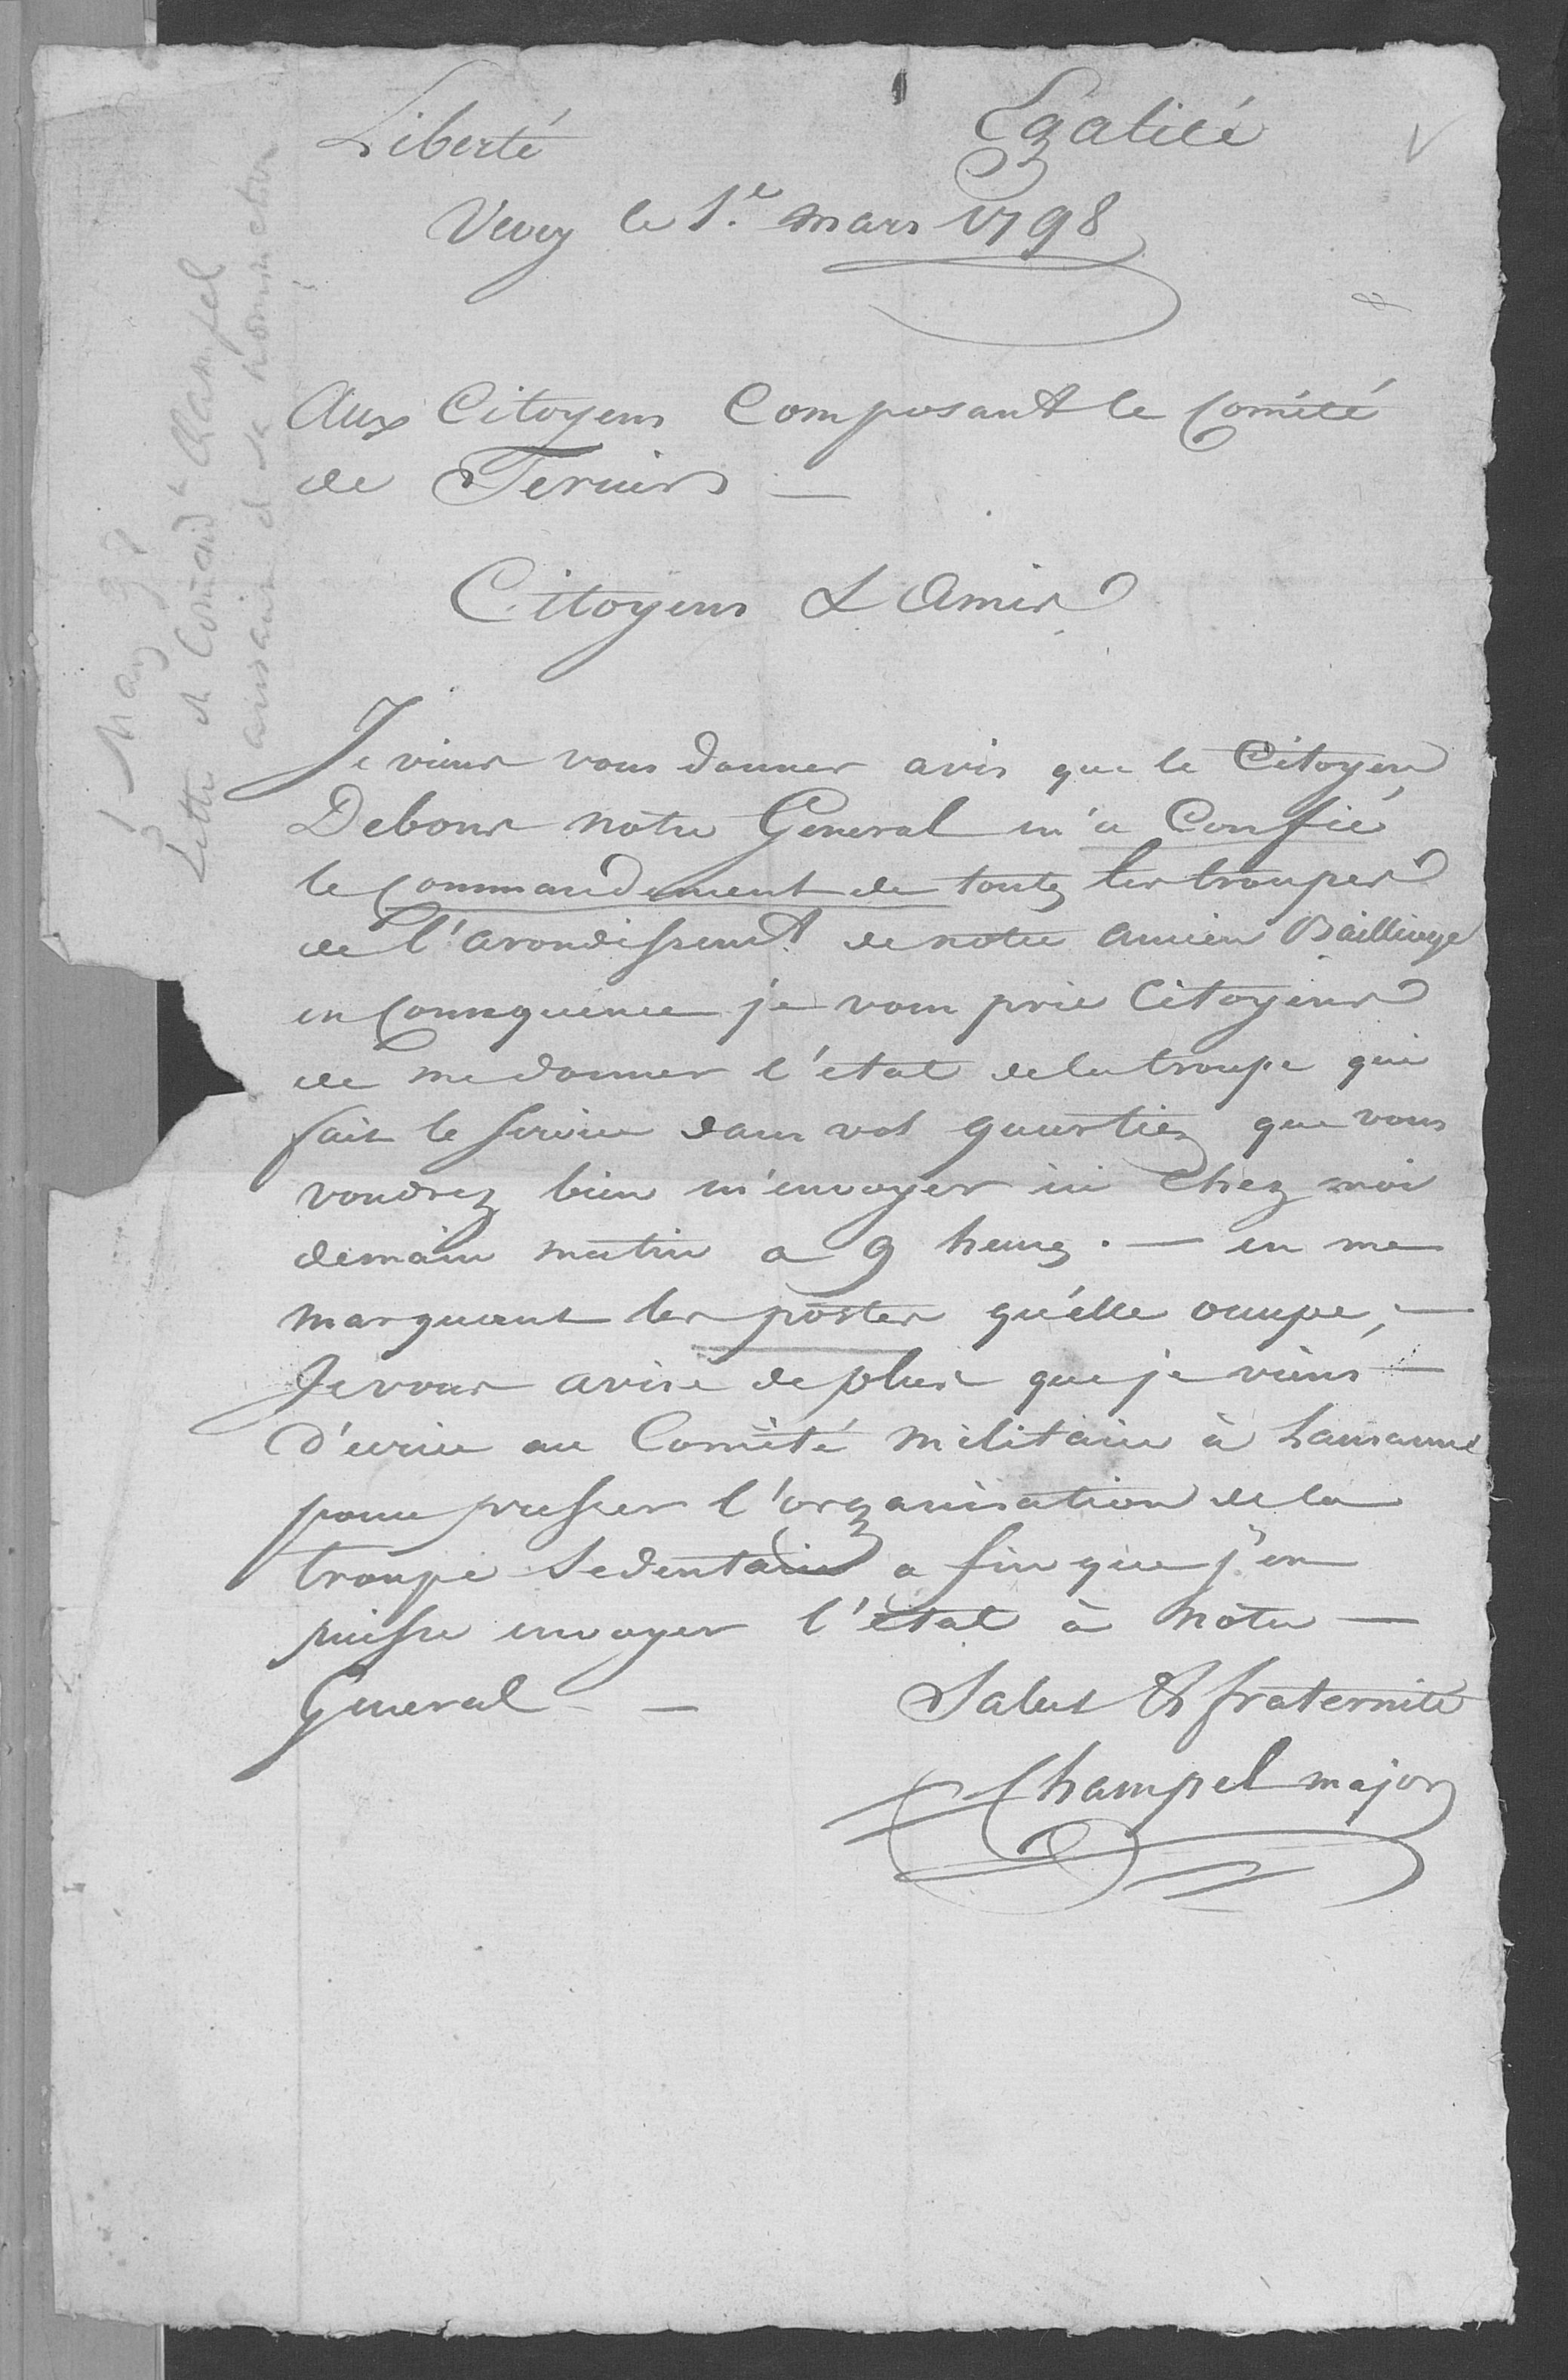 Liberté Egalité
Vevey le 1.e mars 1798
Aux Citoyens Composant le Comité
de
Citoyens & Amis
Je viens vous donner avis que le Citoyen
Debons notre General m'a Confié
le Commandement de toutes les troupes
de l'arondissemt. de notre ancien Bailliage
en Consequence je vous prie Citoyens
de me donner l'etat de la troupe qui
fait le service dans vos quartiez que vous
voudrez bien m'envoyer ici chez moi
demain matin a 9 heures. — en me
marquant les postes qu'elle occupe, —
Je vous avise de plus que je viens —
d'ecrire au Comité Militaire à Lausanne
pour presser l'organisation de la
troupe Sedentaire a fin que j'en
puisse envoyer l'état à notre —
General — Salut & fraternité
Champel major
1 Mars 98
Lettre du Comand.t Champel
avisant de sa nomination